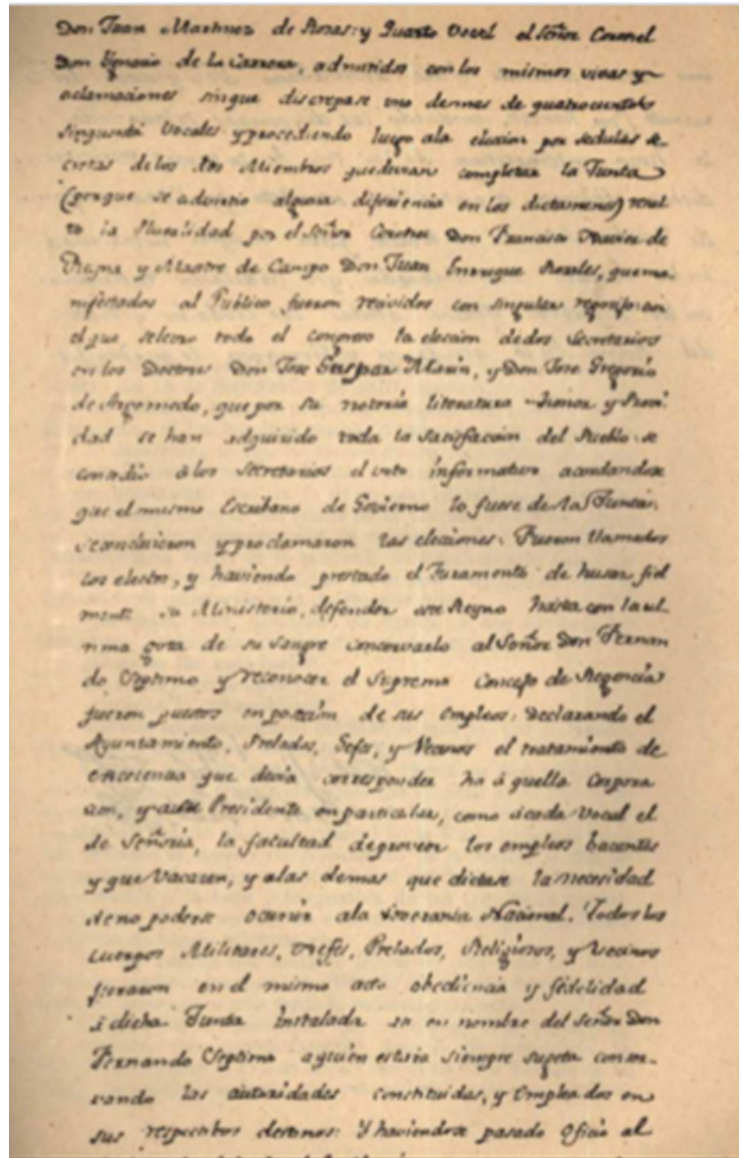 Don Juan Martinez de Rosas: y Quarto Vocal el Señor Coronel
Don Ygnacio de la Carrera, admitidos con los mismos vivas y
aclamaciones sin que discrepase uno de mas de quatrocientos
singuenta Vocales y procediendo luego ala eleccion por sedulas se-
cretas delos dos Miembros que devian completar la Junta
(porque se advirtio alguna diferiencia en los dictamenes) resul
to la Pluralidad por el Señor Coronel Don Francisco Xavier de
Reyna y Maestre de Campo Don Juan Enrrique Rosales, que ma
nifestados al Publico fueron recividos con singular regosijo con
el que selebro todo el Congreso la eleccion dedos Secretarios
en los Doctores Don Jose Gaspar Marin, y Don Jose Gregorio
de Argomedo, que por su notoria literatura honor y Provi
dad se han adquirido toda la satisfaccion del Pueblo: se
consedio álos Secretarios el voto informativo acordandose
que el mismo Escribano de Govierno lo fuese de la Junta:
se concluieron y proclamaron las elecciones: Fueron llamados
los electos, y haviendo prestado el Juramento de husar fiel
mente su Ministerio, defender este Reyno hasta con la ul-
tima gota de su sangre conservarlo al Señor Don Fernan
do Septimo y reconocer el Supremo Concejo de Regencia
fueron puestos en posecion de sus empleos: Declarando el
Ayuntamiento, Prelados, Gefes, y Vecinos el tratamiento de
excelencia que devia corresponder ha á quella Corpora
cion, y asu Presidente en particular, como ácada Vocal el
de Señoria, la facultad de proveer los empleos bacantes
y que vacaren, y alas demas que dictase la necesidad
de no poderse ocurrir ala Soverania Nacional. Todos los
cuerpos Militares, Gefes, Prelados, Religiosos, y Vecinos
juraron en el mismo acto obediencia y fidelidad
á dicha Junta instalada en nombre del Señor Don
Fernando Septimo aquien estaria siempre sugeta conser-
vando las autoridades constituidas, y Empleados en
sus respectibos destinos: Y haviendose pasado Oficio al